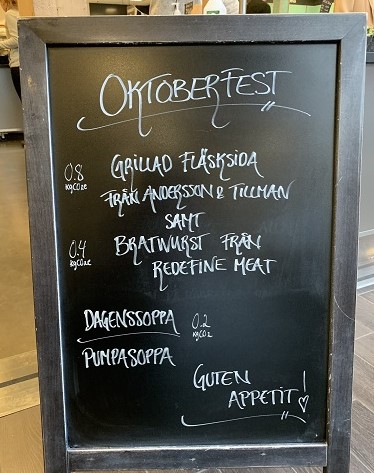 OKTOBERFEST
0.8 GRILLAD FLÄSKSIDA
KgCO2e FRÅN ANDERSSON & TILLMAN
SAMT
0.4 BRATWURST FRÅN
KgCO2e REDEFINE MEAT
DAGENSSOPPA 0.2
KgCO2
PUMPASOPPA
GUTEN
APPETIT!